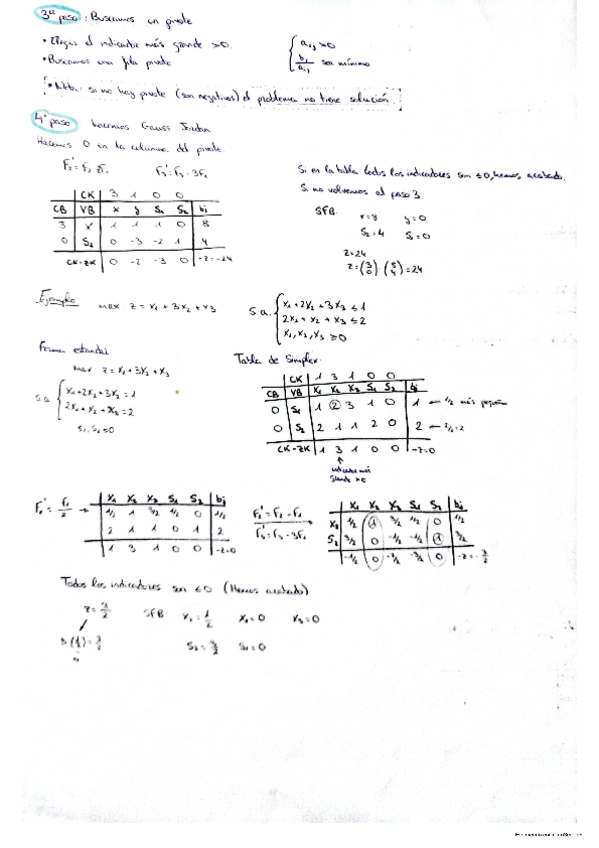 3er paso: Buscamos un pivote
• Elegir el indicador más grande >0.
• Buscamos una fila pivote
{ aij >0
bi/aij sea mínimo
* Nota: si no hay pivote (son negativos) el problema no tiene solución
4º paso hacemos Gauss Jordan
Hacemos 0 en la columna del pivote
F3' = F3 - 3F1
Si en la tabla todos los indicadores son ≤0, hemos acabado.
Si no volvemos al paso 3.
CK 3 1 0 0
CB VB x y S1 S2 bi
3 x 1 1 1 0 8
0 S2 0 -3 -2 1 4
CK-ZK 0 -2 -3 0 -z=-24
SFB.
x=8 y=0
S2=4 S1=0
z=24
z=(3 0)(8 4)=24
Ejemplo max z = x1 + 3x2 + x3
s.a. { x1+2x2+3x3 ≤ 1
2x1+x2+x3 ≤ 2
x1, x2, x3 ≥ 0
Forma estándar:
max z = x1 + 3x2 + x3
s.a. { x1+2x2+3x3 = 1
2x1+x2+x3 = 2
S1, S2 ≥ 0
Tabla de Simplex.
CK 1 3 1 0 0
CB VB x1 x2 x3 S1 S2 bi
0 S1 1 2 3 1 0 1 ← 1/2 más pequeño
0 S2 2 1 1 2 0 2 ← 2/1=2
CK-ZK 1 3 1 0 0 -z=0
↑
indicador más
grande >0
F1' = F1/2 →
x1 x2 x3 S1 S2 bi
1/2 1 3/2 1/2 0 1/2
2 1 1 0 1 2
1 3 1 0 0 -z=0
F2' = F2 - F1
F3' = F3 - 3F1
x1 x2 x3 S1 S2 bi
x2 1/2 1 3/2 1/2 0 1/2
S2 3/2 0 -1/2 -1/2 1 3/2
-1/2 0 -7/2 -3/2 0 -z=-3/2
Todos los indicadores son ≤0 (Hemos acabado)
z = 3/2 SFB x2 = 1/2 x1=0 x3=0
3(1/2)=3/2 S2 = 3/2 S1=0